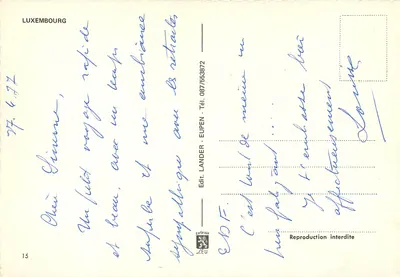 LUXEMBOURG
27.6.77
Chère Simone,
Un petit voyage rapide
et beau. avec un temps
superbe et une ambiance
sympathique avec les retraités
EDF.
C'est tout de même un
peu fatigant....
Je t'embrasse bien
affectueusement
Louise
Edit. LANDER - EUPEN - Tél. 087/553872
Reproduction interdite
15